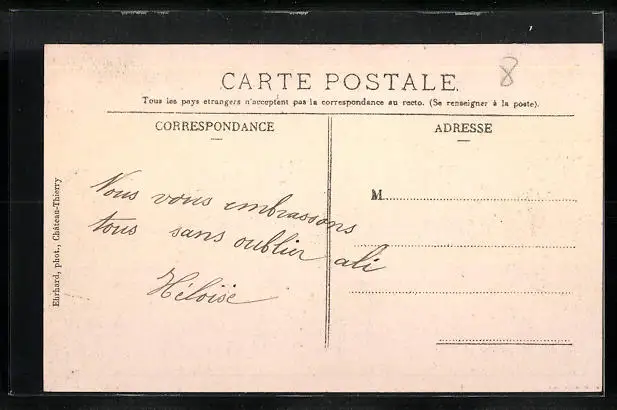 8
CARTE POSTALE.
Tous les pays etrangers n'acceptent pas la correspondance au recto. (Se renseigner à la poste).
CORRESPONDANCE
Nous vous embrassons
tous sans oublier ali
Héloïse
ADRESSE
M
Ehrhard, phot., Château-Thierry